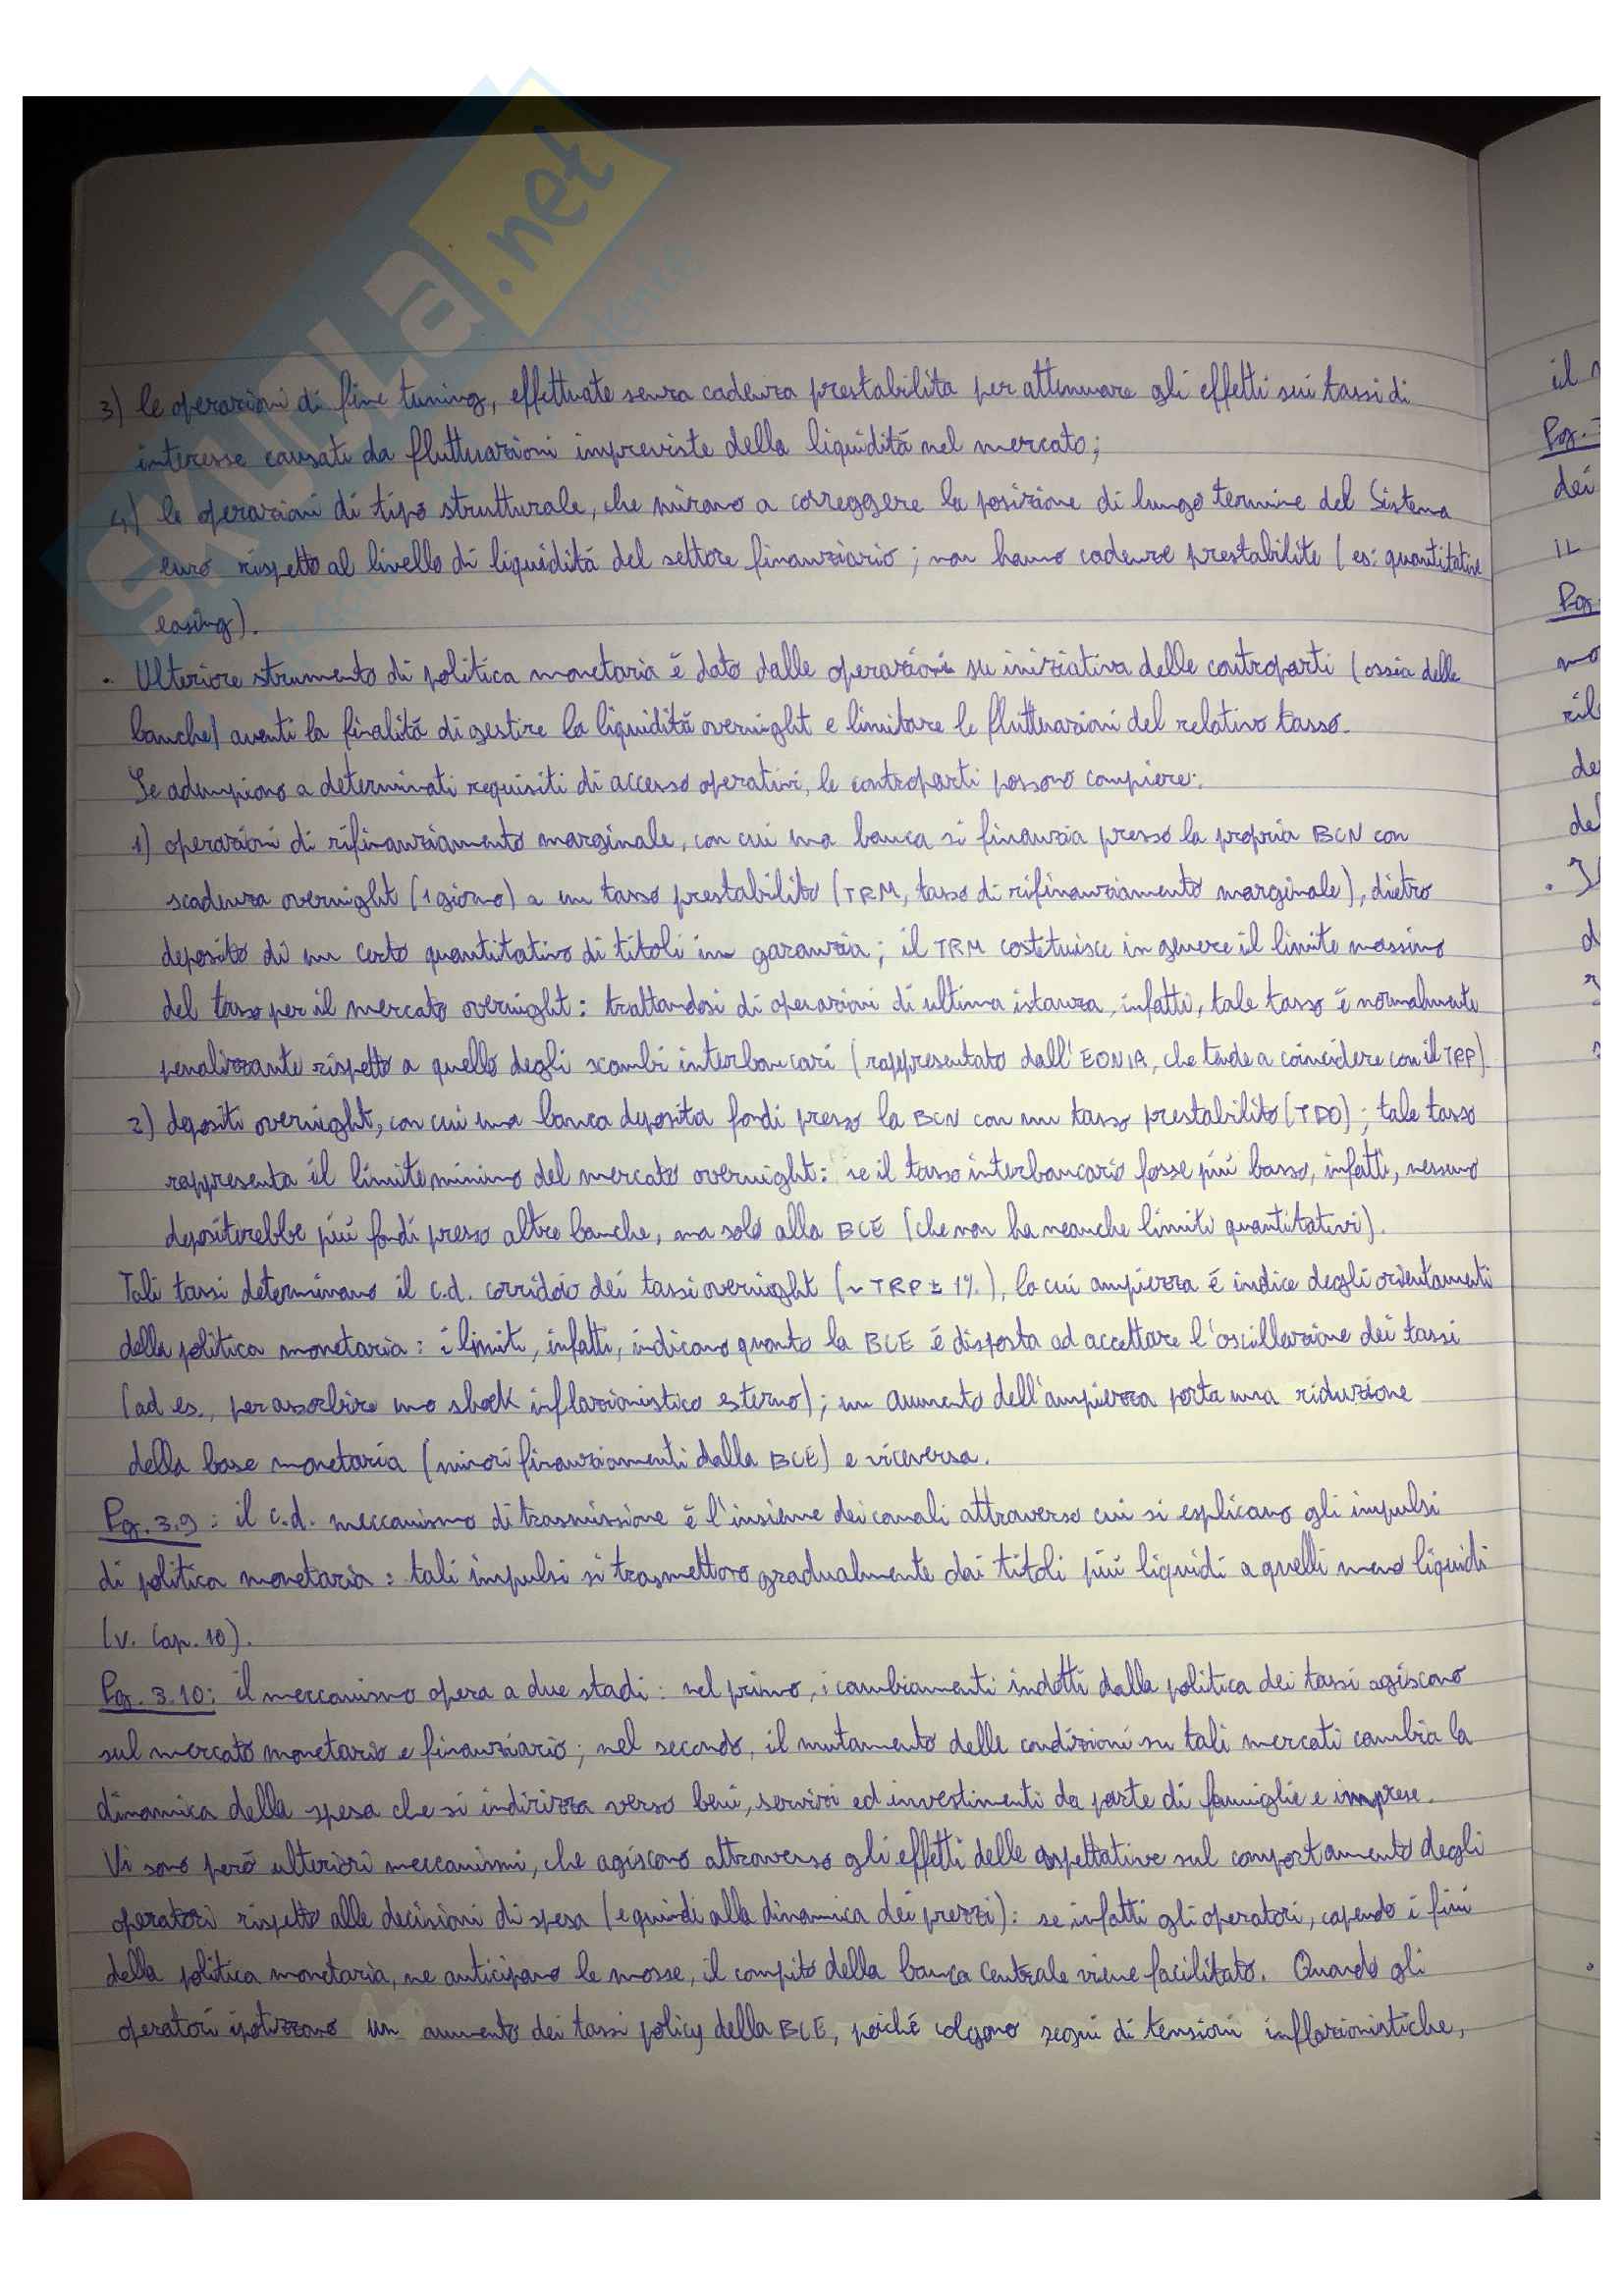 SKUOLA.net
3) le operazioni di fine tuning, effettuate senza cadenza prestabilita per attenuare gli effetti sui tassi di
interesse causati da fluttuazioni impreviste della liquidità nel mercato;
4) le operazioni di tipo strutturale, che mirano a correggere la posizione di lungo termine del Sistema
euro rispetto al livello di liquidità del settore finanziario; non hanno cadenze prestabilite (es: quantitative
easing).
. Ulteriore strumento di politica monetaria è dato dalle operazioni su iniziativa delle controparti (ossia delle
banche) aventi la finalità di gestire la liquidità overnight e limitare le fluttuazioni del relativo tasso.
Se adempiono a determinati requisiti di accesso operativi, le controparti possono compiere:
1) operazioni di rifinanziamento marginale, con cui una banca si finanzia presso la propria BCN con
scadenza overnight (1 giorno) a un tasso prestabilito (TRM, tasso di rifinanziamento marginale), dietro
deposito di un certo quantitativo di titoli in garanzia; il TRM costituisce in genere il limite massimo
del tasso per il mercato overnight: trattandosi di operazioni di ultima istanza, infatti, tale tasso è normalmente
penalizzante rispetto a quello degli scambi interbancari (rappresentato dall'EONIA, che tende a coincidere con il TRP).
2) depositi overnight, con cui una banca deposita fondi presso la BCN con un tasso prestabilito (TDO); tale tasso
rappresenta il limite minimo del mercato overnight: se il tasso interbancario fosse più basso, infatti, nessuno
depositerebbe più fondi presso altre banche, ma solo alla BCE (che non ha neanche limiti quantitativi).
Tali tassi determinano il c.d. corridoio dei tassi overnight (~ TRP ± 1%), la cui ampiezza è indice degli orientamenti
della politica monetaria: i limiti, infatti, indicano quanto la BCE è disposta ad accettare l'oscillazione dei tassi
(ad es., per assorbire uno shock inflazionistico esterno); un aumento dell'ampiezza porta una riduzione
della base monetaria (minori finanziamenti dalla BCE) e viceversa.
Pg. 3.9: il c.d. meccanismo di trasmissione è l'insieme dei canali attraverso cui si esplicano gli impulsi
di politica monetaria: tali impulsi si trasmettono gradualmente dai titoli più liquidi a quelli meno liquidi
(v. Cap. 10).
Pg. 3.10: il meccanismo opera a due stadi: nel primo, i cambiamenti indotti dalla politica dei tassi agiscono
sul mercato monetario e finanziario; nel secondo, il mutamento delle condizioni su tali mercati cambia la
dinamica della spesa che si indirizza verso beni, servizi ed investimenti da parte di famiglie e imprese.
Vi sono però ulteriori meccanismi, che agiscono attraverso gli effetti delle aspettative sul comportamento degli
operatori rispetto alle decisioni di spesa (e quindi alla dinamica dei prezzi): se infatti gli operatori, capendo i fini
della politica monetaria, ne anticipano le mosse, il compito della banca centrale viene facilitato. Quando gli
operatori ipotizzano un aumento dei tassi policy della BCE, poiché colgono segni di tensioni inflazionistiche,